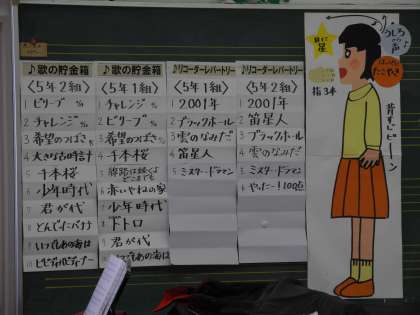 ♪歌の貯金箱
〈5年2組〉
1 ビリーブ
2 チャレンジ
3 希望のつばさ
4 大きな古時計
5 千本桜
6 少年時代
7 君が代
8 とんでったバナナ
9 いつもあの海は
10 ビビディバビディブー
♪歌の貯金箱
〈5年1組〉
1 チャレンジ
2 ビリーブ
3 希望のつばさ
4 千本桜
5
6 赤いやねの家
7 少年時代
8 トトロ
9 君が代
いつもあの海は
♪リコーダーレパートリー
〈5年1組〉
1 2001年
2 ブラックホール
3 雲のなみだ
4 笛星人
5 ミスター・ドラマン
♪リコーダーレパートリー
〈5年2組〉
1 2001年
2 笛星人
3 ブラックホール
4 雲のなみだ
5 ミスター・ドラマン
6 やったー!100点
星
うしろ
声
たこやき
指3本
背すじピーン